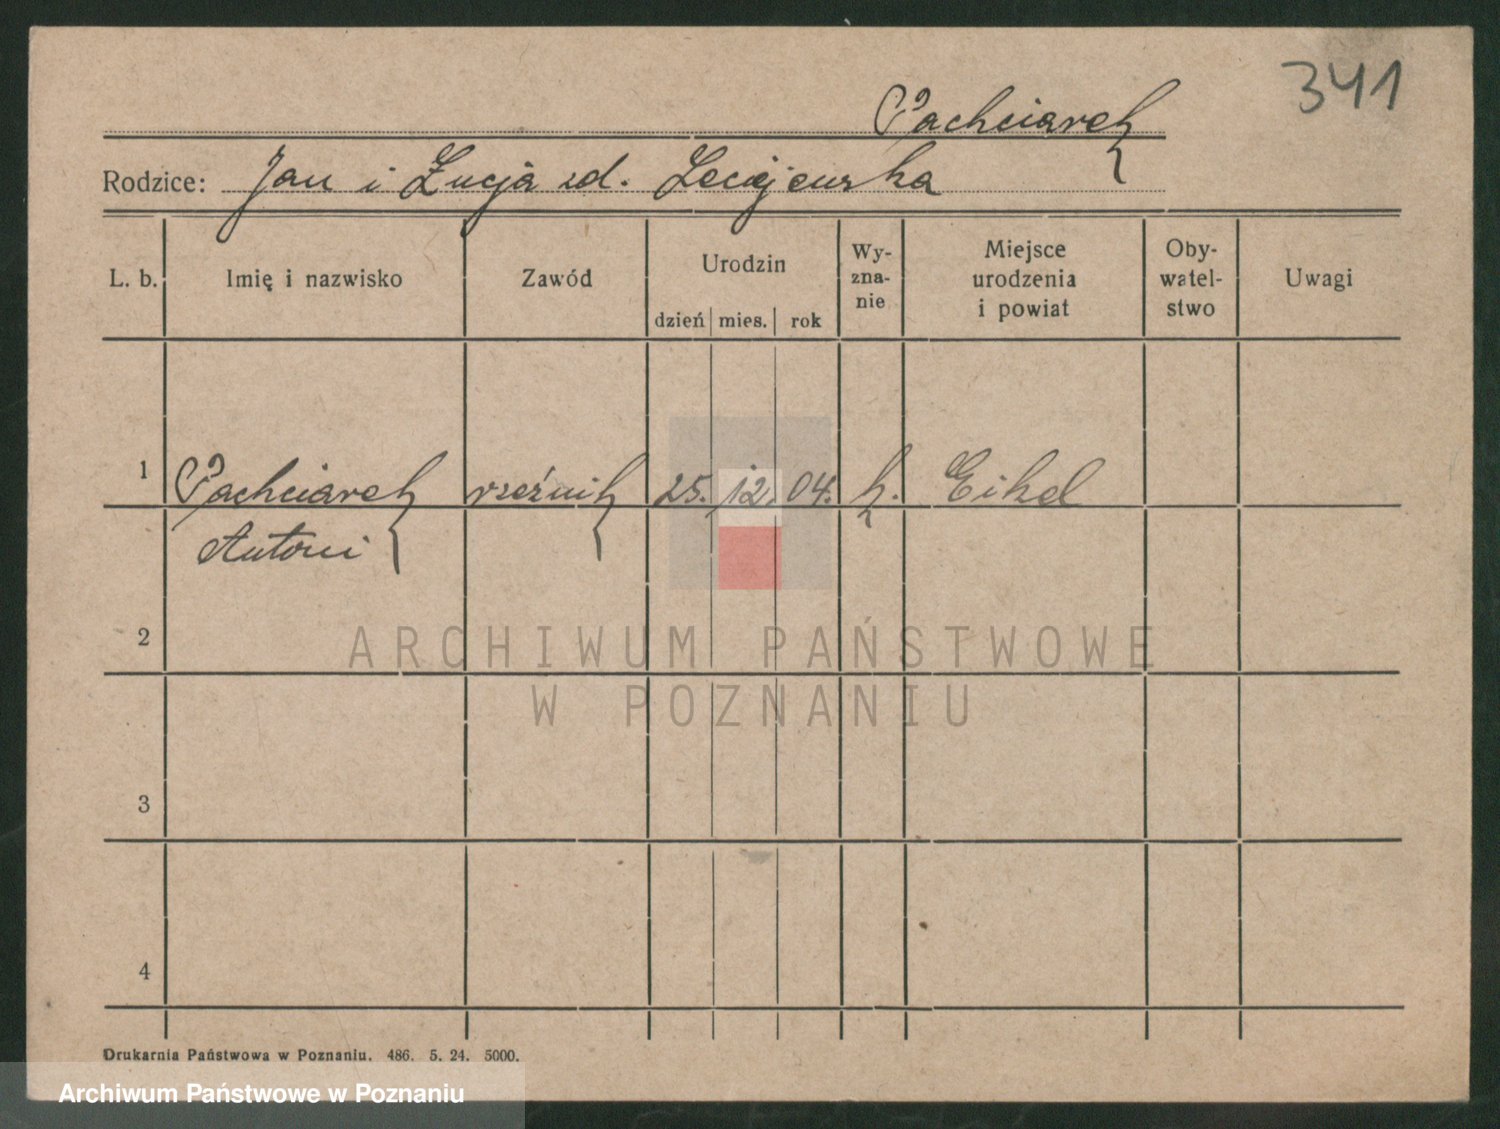 341
Pachciarek
Rodzice: Jan i Łucja zd. Leciejewska
L. b. Imię i nazwisko Zawód Urodzin dzień mies. rok Wy-zna-nie Miejsce urodzenia i powiat Oby-watel-stwo Uwagi
1 Pachciarek rzeźnik 25. 12. 04. k. Eikel
Antoni
2
ARCHIWUM PAŃSTWOWE
W POZNANIU
3
4
Drukarnia Państwowa w Poznaniu. 486. 5. 24. 5000.
Archiwum Państwowe w Poznaniu